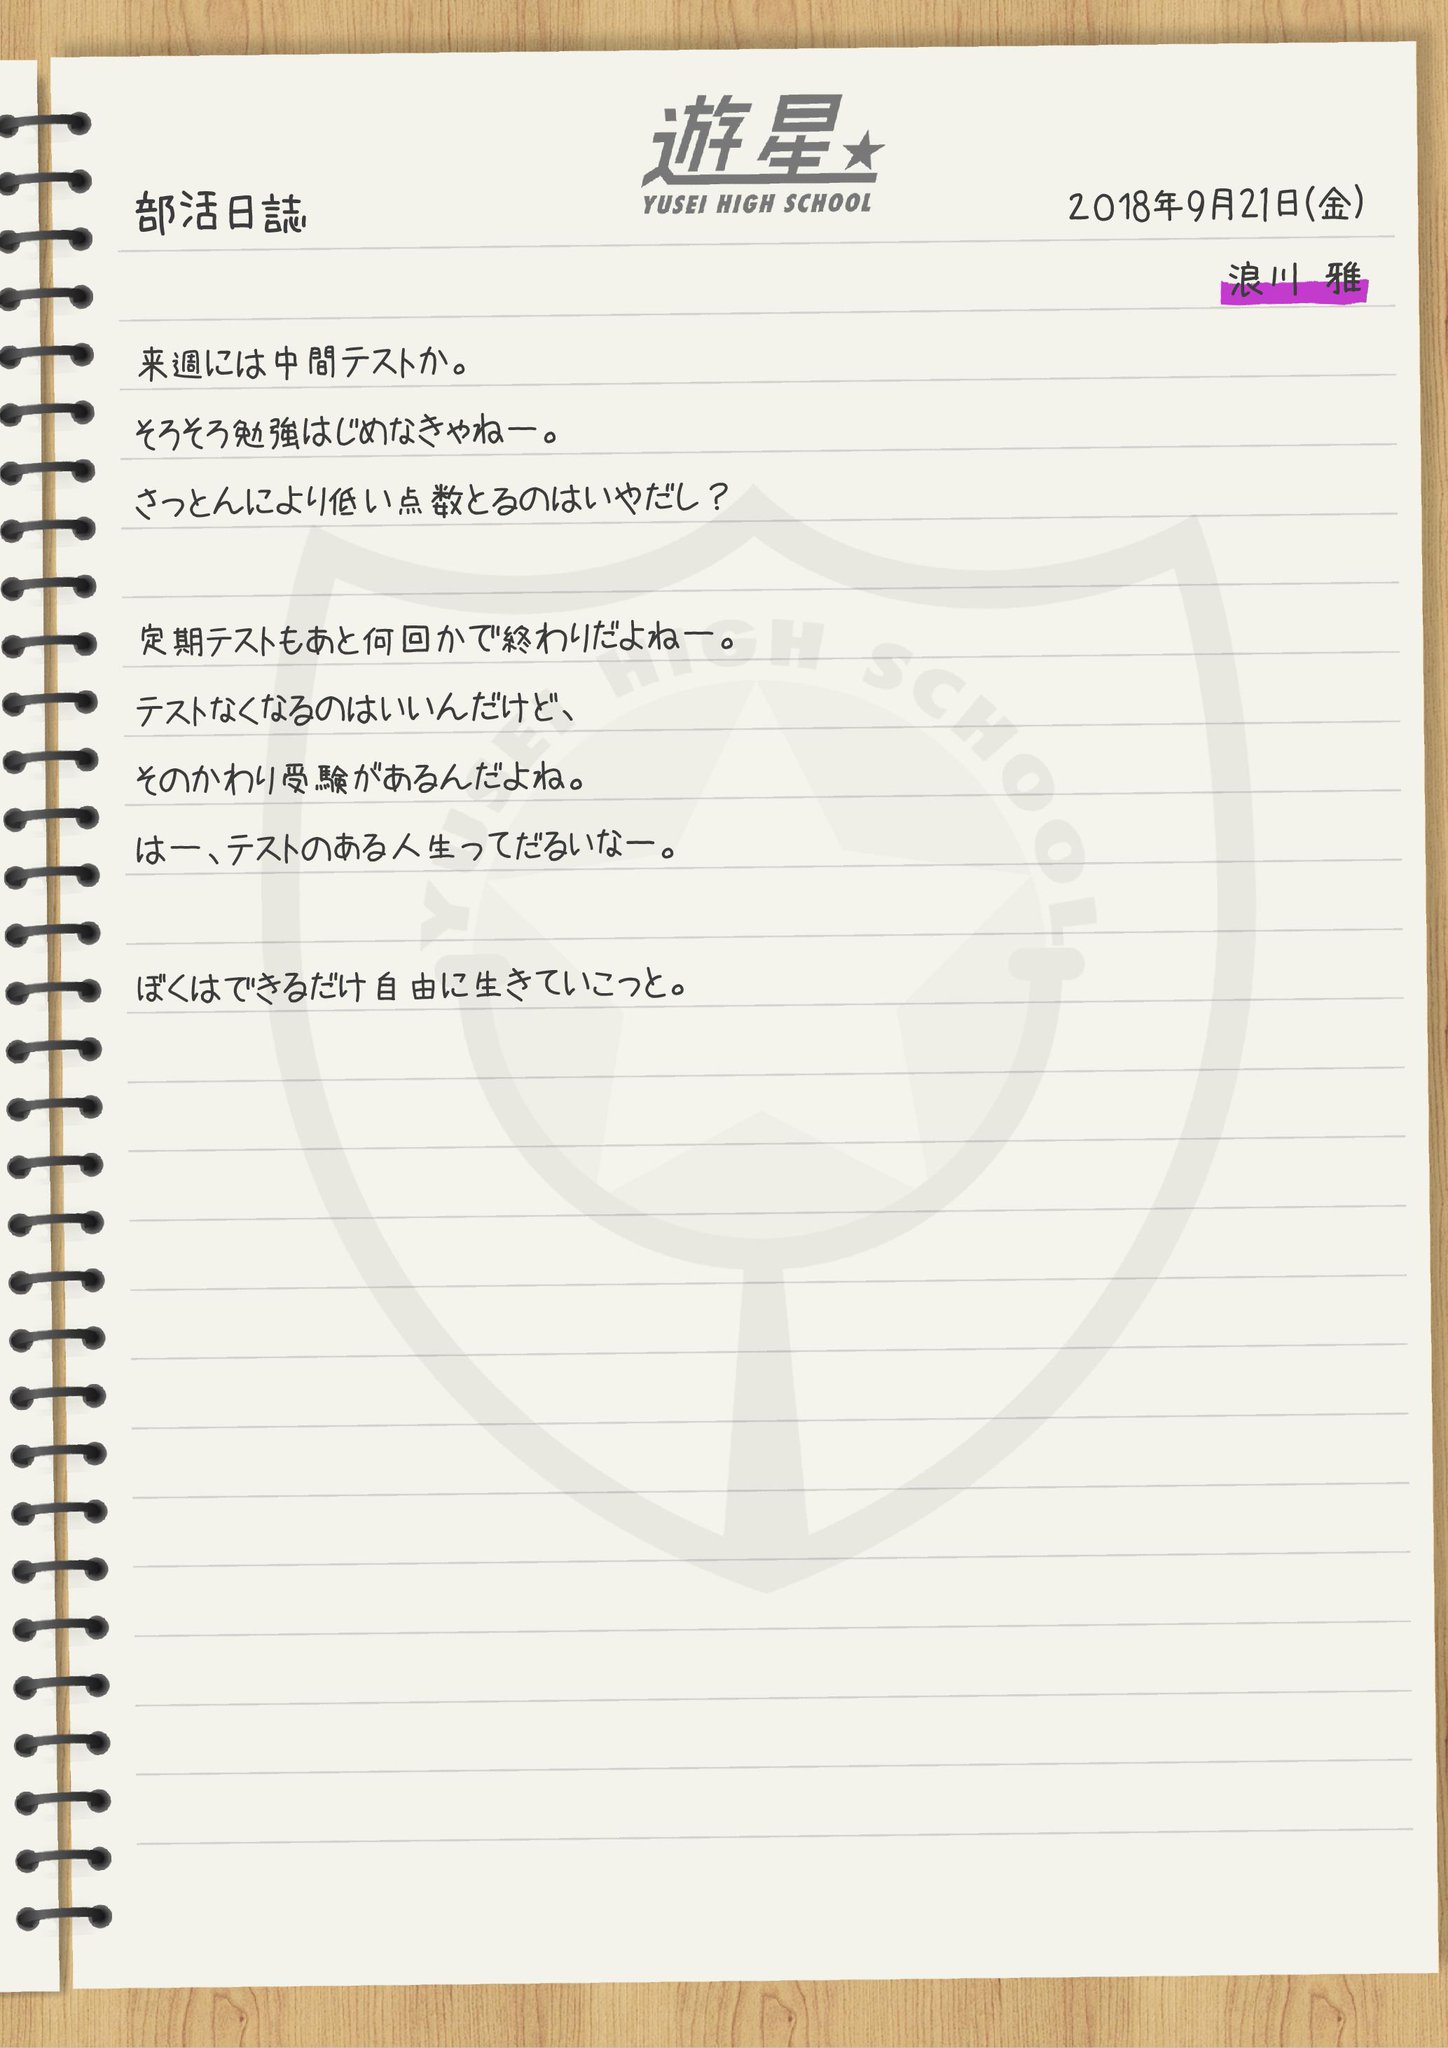 遊星★
YUSEI HIGH SCHOOL
部活日誌
2018年9月21日(金)
浪川 雅
来週には中間テストか。
そろそろ勉強はじめなきゃねー。
さっとんにより低い点数とるのはいやだし？
定期テストもあと何回かで終わりだよねー。
テストなくなるのはいいんだけど、
そのかわり受験があるんだよね。
はー、テストのある人生ってだるいなー。
ぼくはできるだけ自由に生きていこっと。
YUSEI HIGH SCHOOL